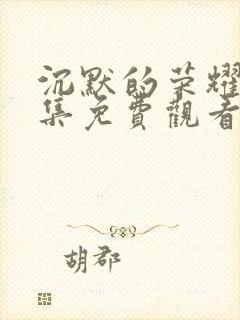 沉默的荣耀
集免費觀看
胡郡